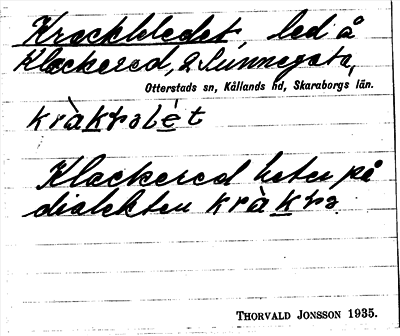 Krackeledet, led å
Klackered, 2 Sunnegsta,
Otterstads sn, Kållands hd, Skaraborgs län.
kràkrəlét
Klackered heter på
dialekten kràkrə.
THORVALD JONSSON 1935.